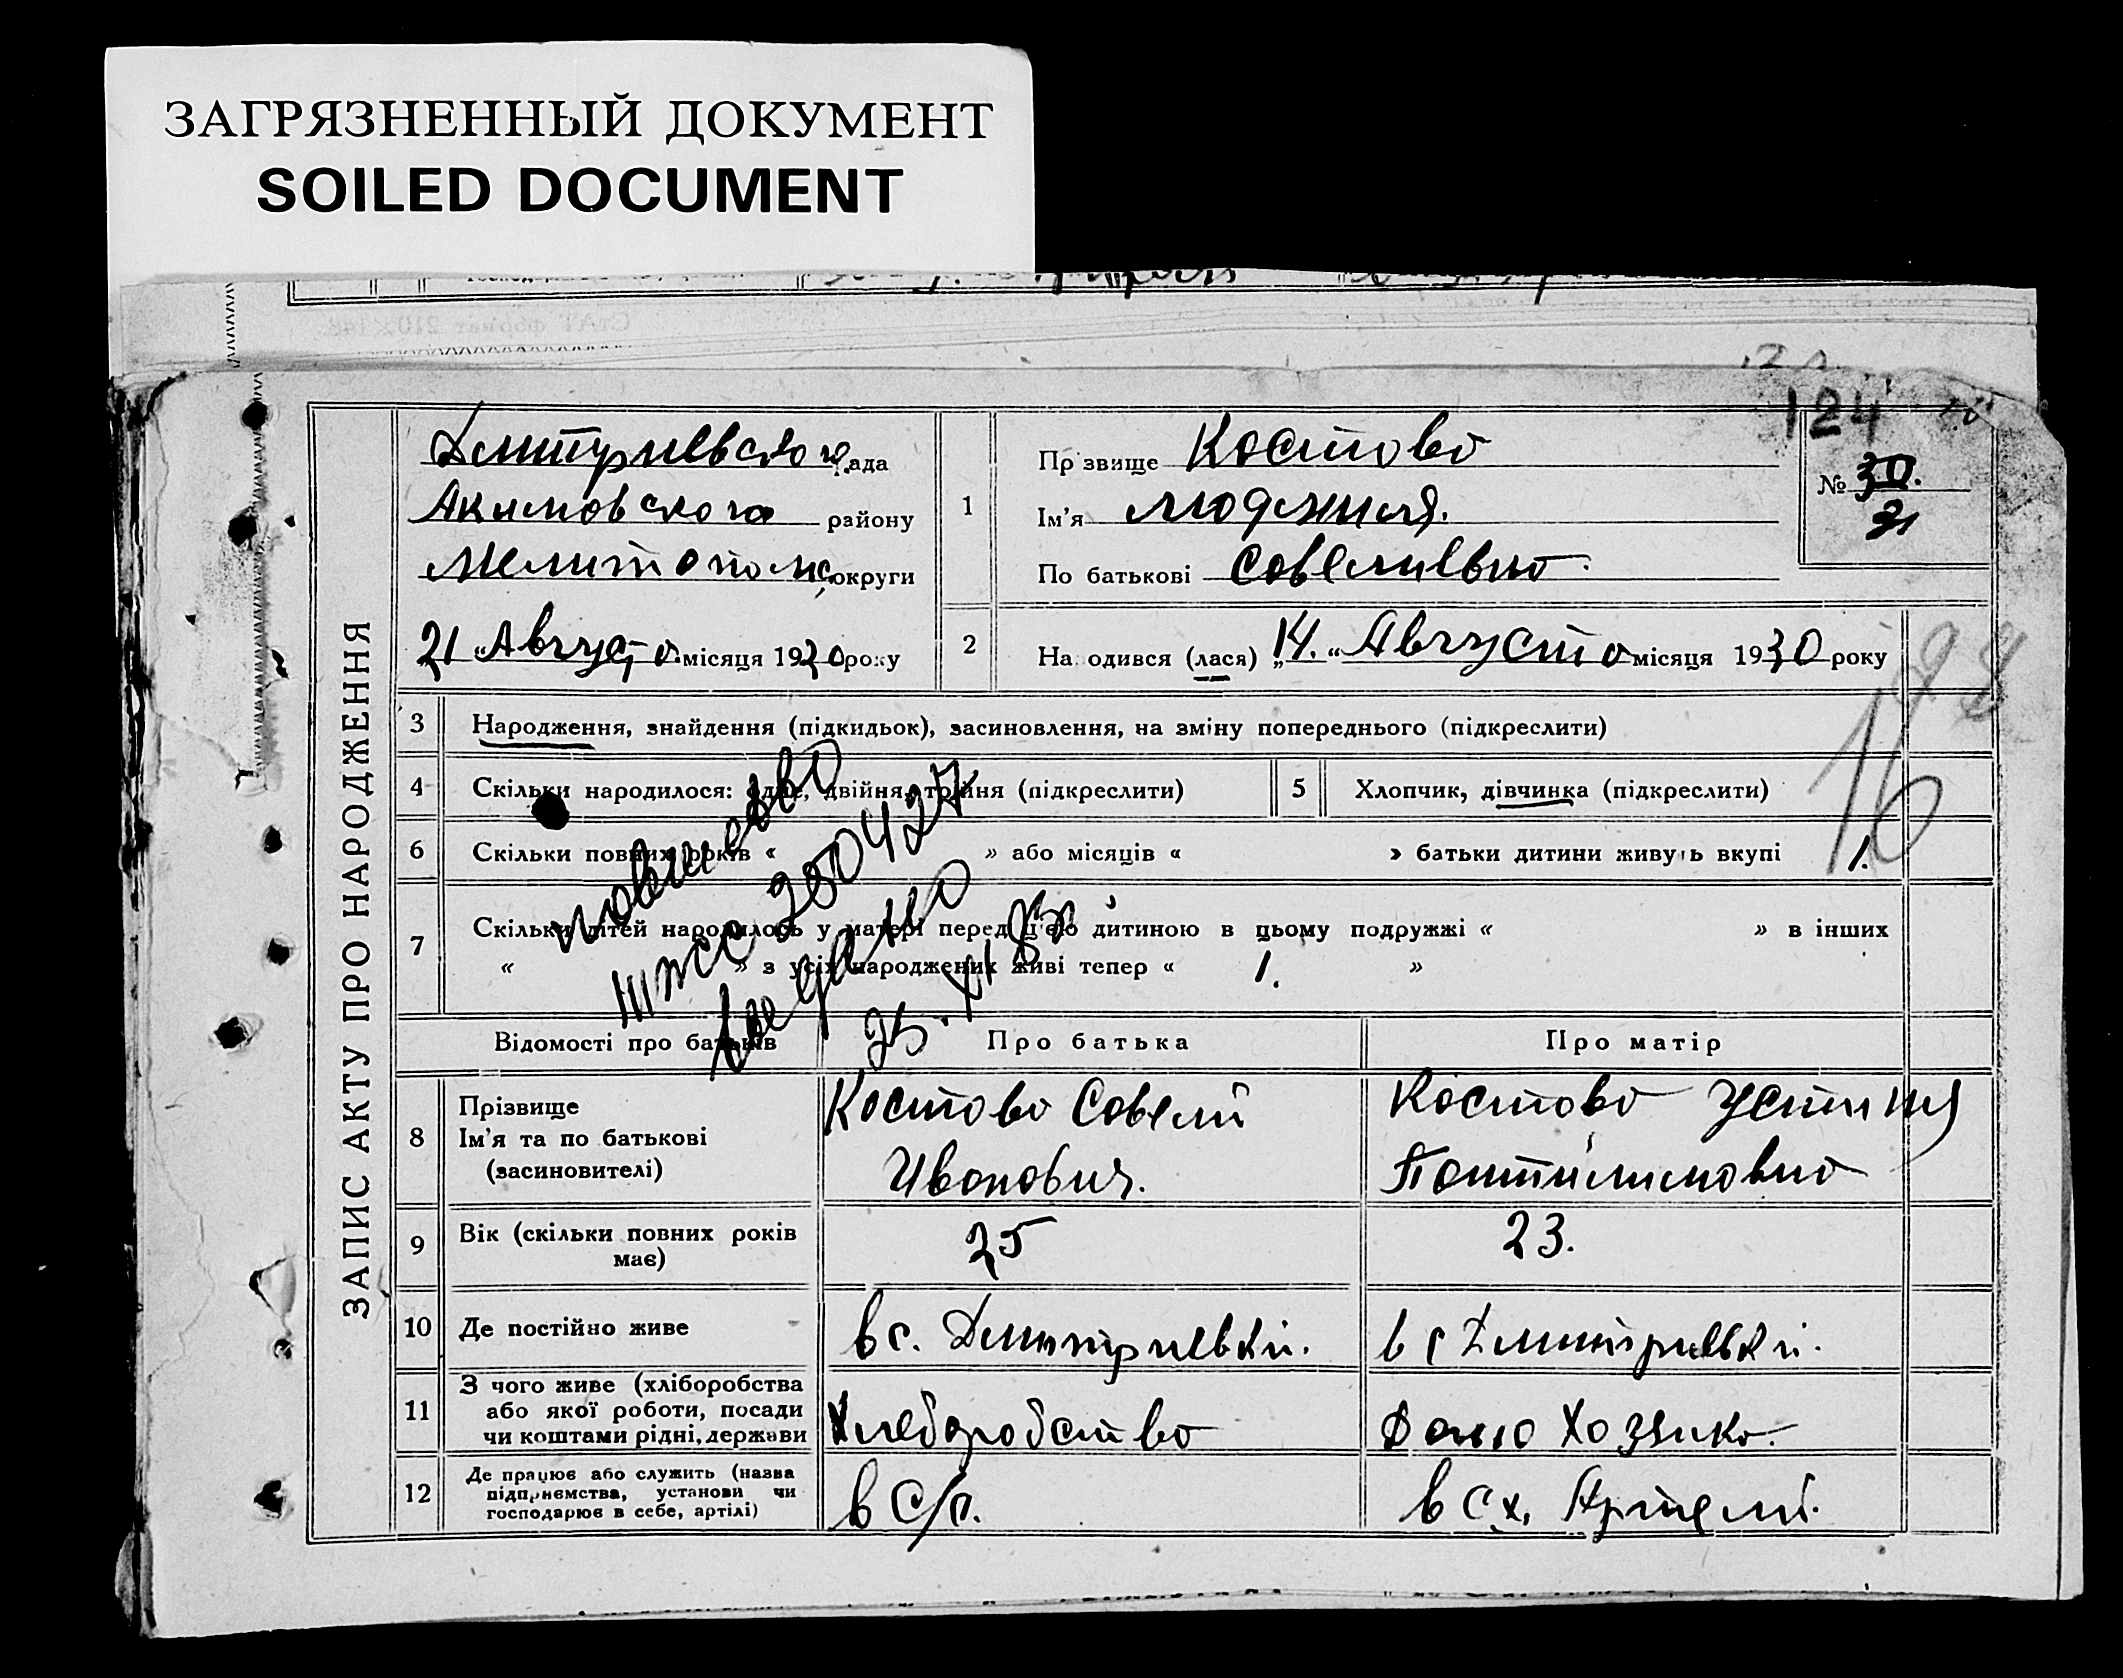 ЗАГРЯЗНЕННЫЙ ДОКУМЕНТ
SOILED DOCUMENT
124
ЗАПИС АКТУ ПРО НАРОДЖЕННЯ
Дмитриевского рада
Акимовского району
Мелитопольс округи
21 „Августа місяця 1930 року
1
Прізвище Костова
Ім'я Людмила.
По батькові Савельевна.
№ 30.
21
2 Народився (лася) „14.“ Августа місяця 1930 року
3 Народження, знайдення (підкидьок), засиновлення, на зміну попереднього (підкреслити)
4 Скільки народилося: одне, двійня, трійня (підкреслити)
5 Хлопчик, дівчинка (підкреслити)
16
6 Скільки повних років « » або місяців « » батьки дитини живуть вкупі 1.
7 Скільки дітей народилось у матері перед ц'ею дитиною в цьому подружжі « » в інших
« » з усіх народжених живі тепер « 1. »
повторно
ІІІ жс 2504 27
выдано
25.XI 8
Відомості про батьків
Про батька
Про матір
8 Прізвище
Ім'я та по батькові
(засиновителі)
Костова Савелий
Иванович.
Костова Устиния
Пантилимовна
9 Вік (скільки повних років
має)
25
23.
10 Де постійно живе
в с. Дмитриевки.
в с Дмитриевки.
11 З чого живе (хліборобства
або якої роботи, посади
чи коштами рідні, держави
Хлеборобство
Домо Хозяйка.
12 Де працює або служить (назва
підприємства, установи чи
господарює в себе, артілі)
в С/х.
в С.х. Артели.